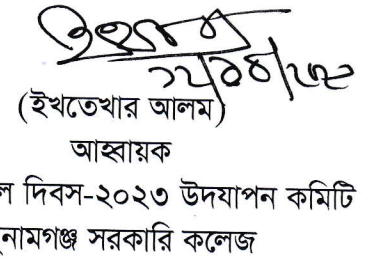 (ইখতেখার আলম)
আহ্বায়ক
ল দিবস-২০২৩ উদযাপন কমিটি
নামগঞ্জ সরকারি কলেজ